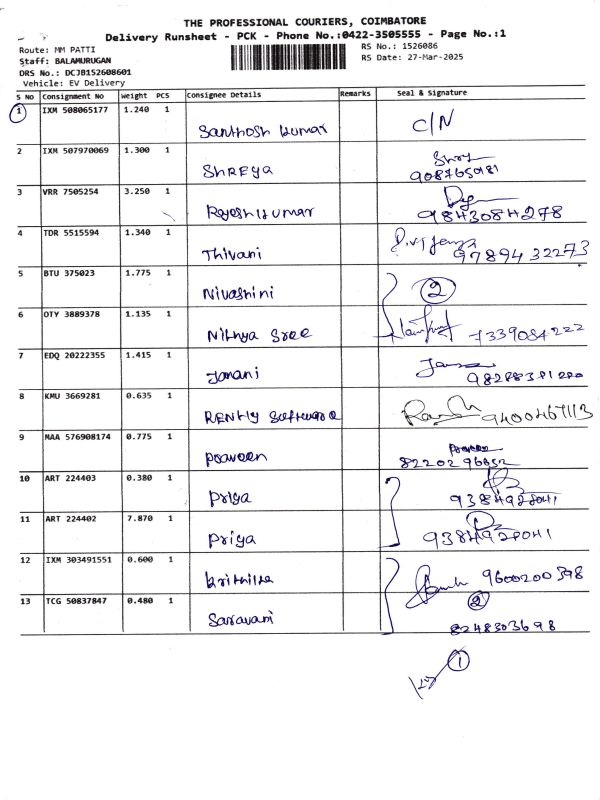 THE PROFESSIONAL COURIERS, COIMBATORE
Delivery Runsheet - PCK - Phone No.:0422-3505555 - Page No.:1
Route: MM PATTI
RS No.: 1526086
Staff: BALAMURUGAN
RS Date: 27-Mar-2025
DRS No.: DCJB152608601
Vehicle: EV Delivery
S No Consignment No Weight PCS Consignee Details Remarks Seal & Signature
1 IXM 508065177 1.240 1
Santhosh kumar C/N
2 IXM 507970069 1.300 1
SHREYA
3 VRR 7505254 3.250 1
Rajesh kumar 9843084278
4 TDR 5515594 1.340 1
Thivani 9789432273
5 BTU 375023 1.775 1
Nivashini 2
6 OTY 3889378 1.135 1
Nithya Sree 7339084222
7 EDQ 20222355 1.415 1
Janani
8 KMU 3669281 0.635 1
RENTLY Software
9 MAA 576908174 0.775 1
Praveen Praveen
8220296652
10 ART 224403 0.380 1
Priya 9384928041
11 ART 224402 7.870 1
Priya 9384928041
12 IXM 303491551 0.600 1
9600200398
13 TCG 50837847 0.480 1
2
Saravani 8248303698
1